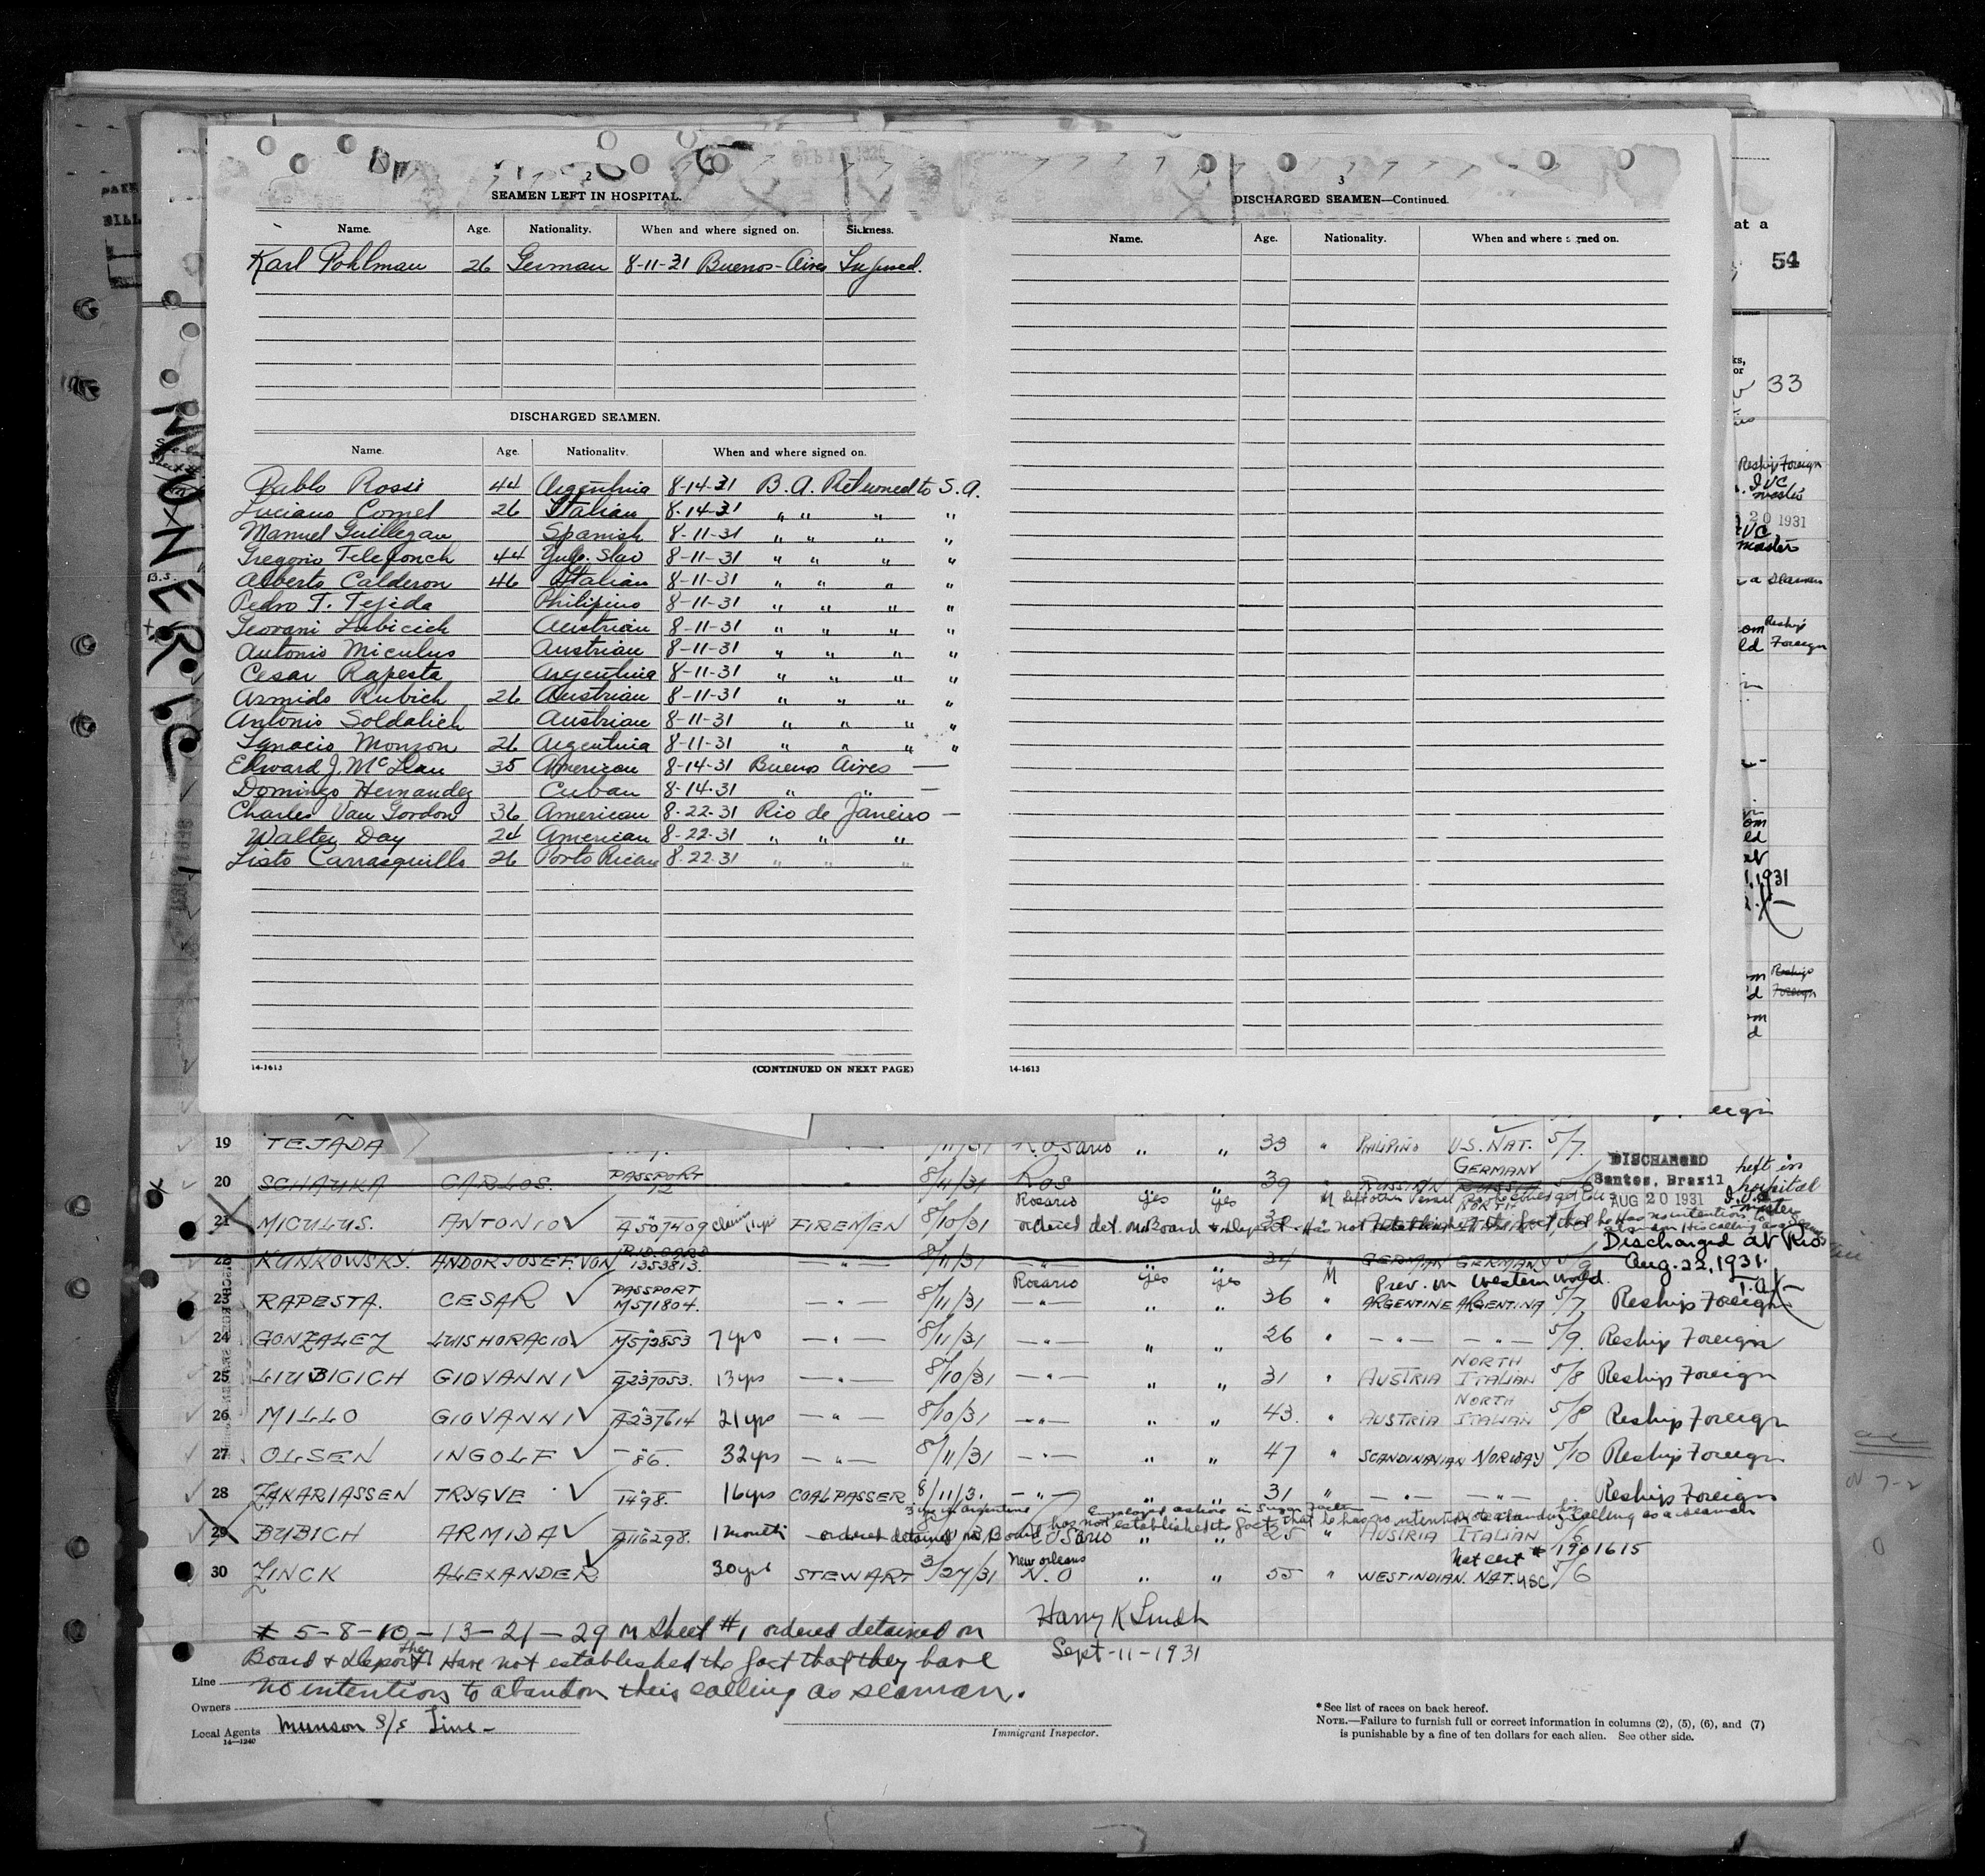 2
SEAMEN LEFT IN HOSPITAL.
Name. Age. Nationality. When and where signed on. Sickness.
Karl Pohlman 26 German 8-11-31 Buenos-Aires Injured.
DISCHARGED SEAMEN.
Name. Age. Nationality. When and where signed on.
Pablo Rossi 44 Argentina 8-14-31 B.A. Returned to S.A.
Luciano Comel 26 Italian 8-14-31 " " " "
Manuel Guillegan Spanish 8-11-31 " " " "
Gregorio Telefonch 44 Yugo. Slav 8-11-31 " " " "
Alberto Calderon 46 Italian 8-11-31 " " " "
Pedro T. Tejida Philipino 8-11-31 " " " "
Geovani Lubicich Austrian 8-11-31 " " " "
Antonio Miculus Austrian 8-11-31 " " " "
Cesar Rapesta Argentina 8-11-31 " " " "
Armido Rubich 26 Austrian 8-11-31 " " " "
Antonio Soldalich Austrian 8-11-31 " " " "
Ignacio Monzon 26 Argentina 8-11-31 " " " "
Edward J. McLean 35 American 8-14-31 Buenos Aires —
Domingo Hernandez Cuban 8-14-31 " " —
Charles Van Gordon 36 American 8-22-31 Rio de Janeiro —
Walter Day 24 American 8-22-31 " " "
Listo Carrasquillo 26 Porto Rican 8-22-31 " " "
14-1613 (CONTINUED ON NEXT PAGE)
3
DISCHARGED SEAMEN—Continued.
Name. Age. Nationality. When and where signed on.
14-1613
MUNERIC
B.S.
at a
54
33
Reship Foreign
20 1931
master
Reship
Foreign
1931
19 TEJADA /11/31 Rosario " " 33 " PHILIPINO U.S. NAT. 5/7.
20 SCHAUKA CARLOS. PASSPORT 12 — " — 8/11/31 Ros 39 RUSSIAN GERMANY RUSSIA DISCHARGED Santos, Brazil AUG 20 1931 Left in hospital
21 MICULUS. ANTONIO ✓ A507409 FIREMEN 8/10/31 Rosario Yes Yes M ordered det. on Board & Deport
22 KUNKOWSKY. ANDOR JOSEF. VON 1353813. — " — 8/11/31 — " — 34 GERMAN GERMANY 5/9 Discharged at Rio Aug. 22, 1931.
23 RAPESTA. CESAR ✓ PASSPORT M571804. — " — 8/11/31 Rosario Yes Yes 36 M Prev. on Western World. ARGENTINE ARGENTINA 5/7 Reship Foreign
24 GONZALEZ LUIS HORACIO ✓ M572853 7yrs — " — 8/11/31 " " 26 " — " — — " — 5/9. Reship Foreign
25 LIUBICICH GIOVANNI ✓ A237053. 13yrs — " — 8/10/31 — " — " " 31 " AUSTRIA NORTH ITALIAN 5/8 Reship Foreign
26 MILLO GIOVANNI ✓ A237614 21yrs — " — 8/10/31 — " — " " 43. " AUSTRIA NORTH ITALIAN 5/8 Reship Foreign
27 OLSEN INGOLF ✓ 86. 32yrs — " — 8/11/31 — " — " " 47 " SCANDINAVIAN NORWAY 5/10 Reship Foreign
28 ZAKARIASSEN TRYGVE ✓ 1498. 16yrs COALPASSER 8/11/3. — " — " " 31 " — " — — " — Reship Foreign
has not established the fact that he has no intention to abandon his calling as a seaman
29 BUBICH ARMIDA ✓ A116298. 1 month ordered detained on Board " " 25 " AUSTRIA ITALIAN 5/6
30 ZINCK ALEXANDER 30yrs STEWART 3/27/31 New Orleans N.O " " 55 " WESTINDIAN. NAT. USC 5/6 Nat Cert # 1901615
* 5-8-10-13-21-29 on Sheet #1 ordered detained on
Board & Deport They Have not established the fact that they have
no intention to abandon their calling as seaman.
Harry K Lindh
Sept-11-1931
Line
Owners
Local Agents Munson S/S Line-
14—1240
Immigrant Inspector.
* See list of races on back hereof.
NOTE.—Failure to furnish full or correct information in columns (2), (5), (6), and (7)
is punishable by a fine of ten dollars for each alien. See other side.